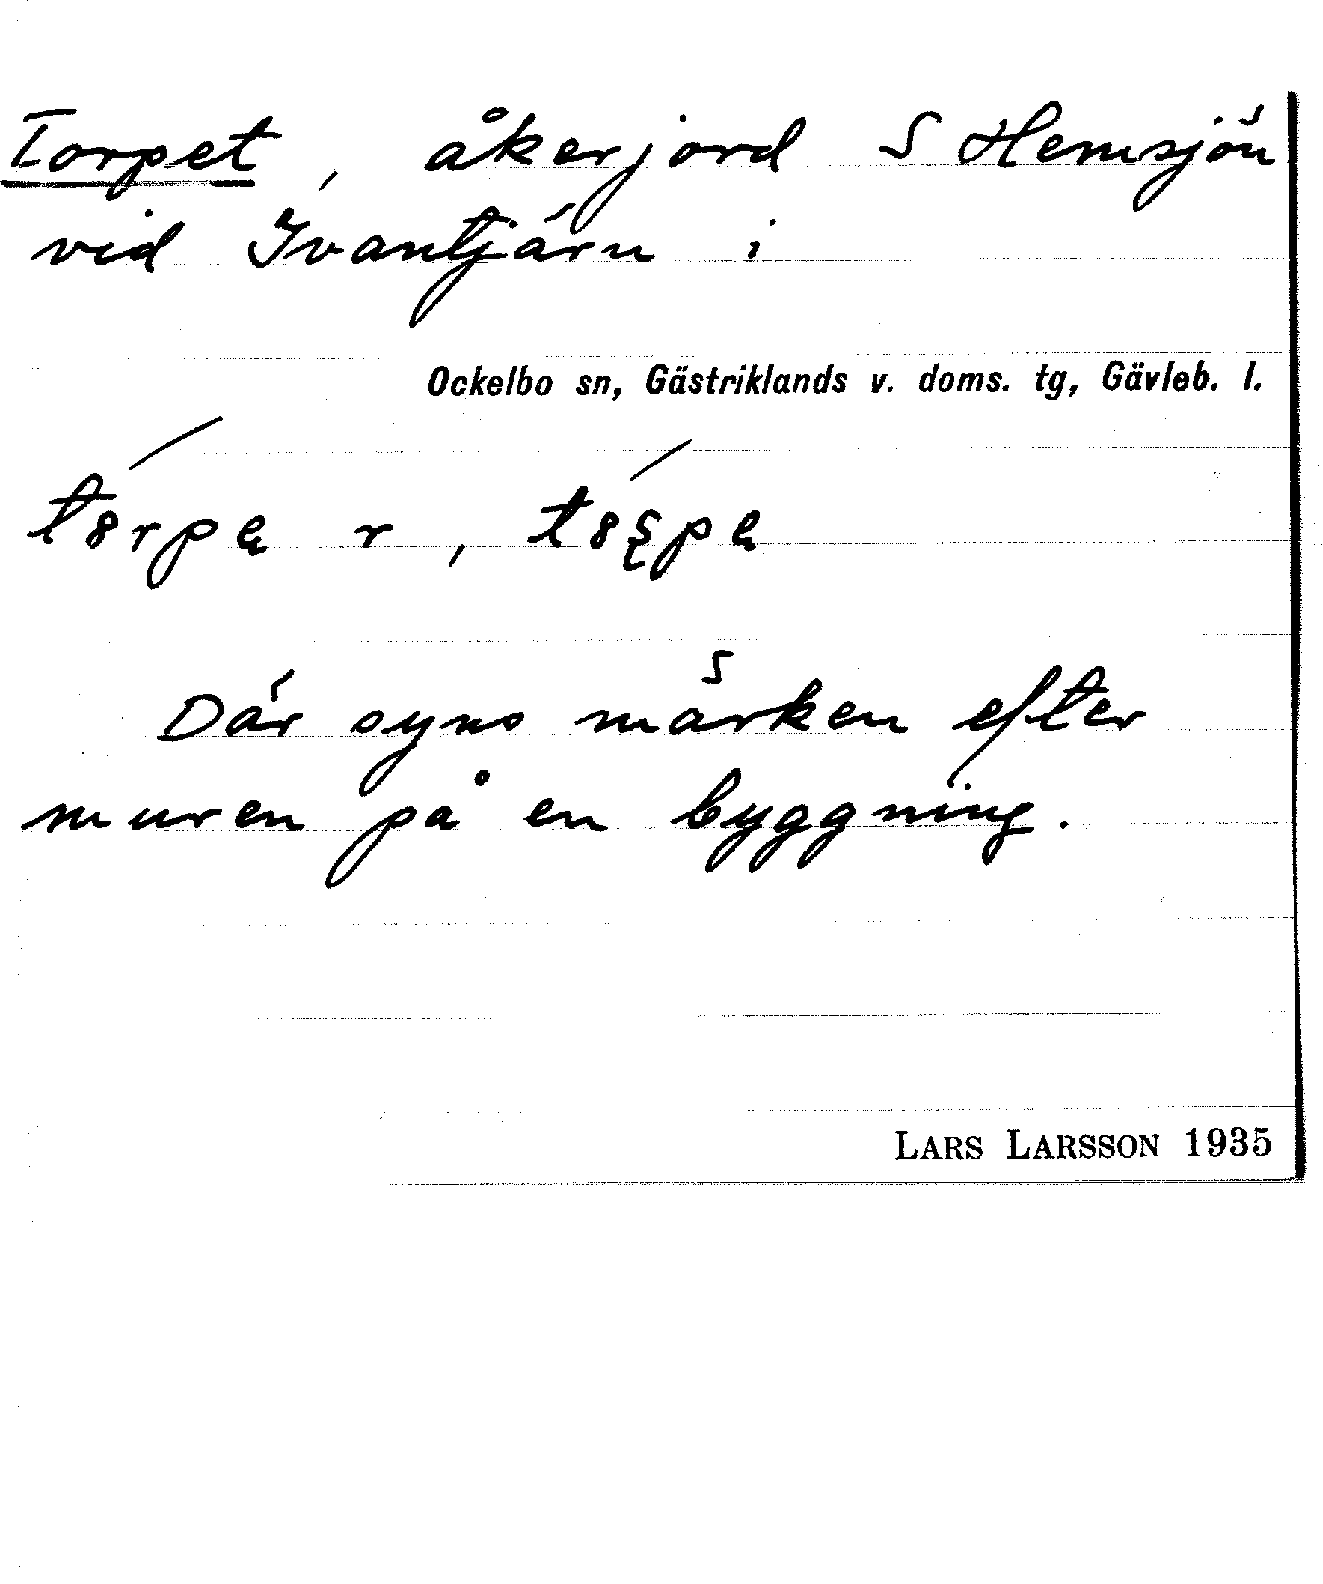 Torpet, åkerjord S Hemsjön
vid Ivantjärn i
Ockelbo sn, Gästriklands v. doms. tg, Gävleb. l.
r,
Där syns märken efter
muren på en byggning.
LARS LARSSON 1935